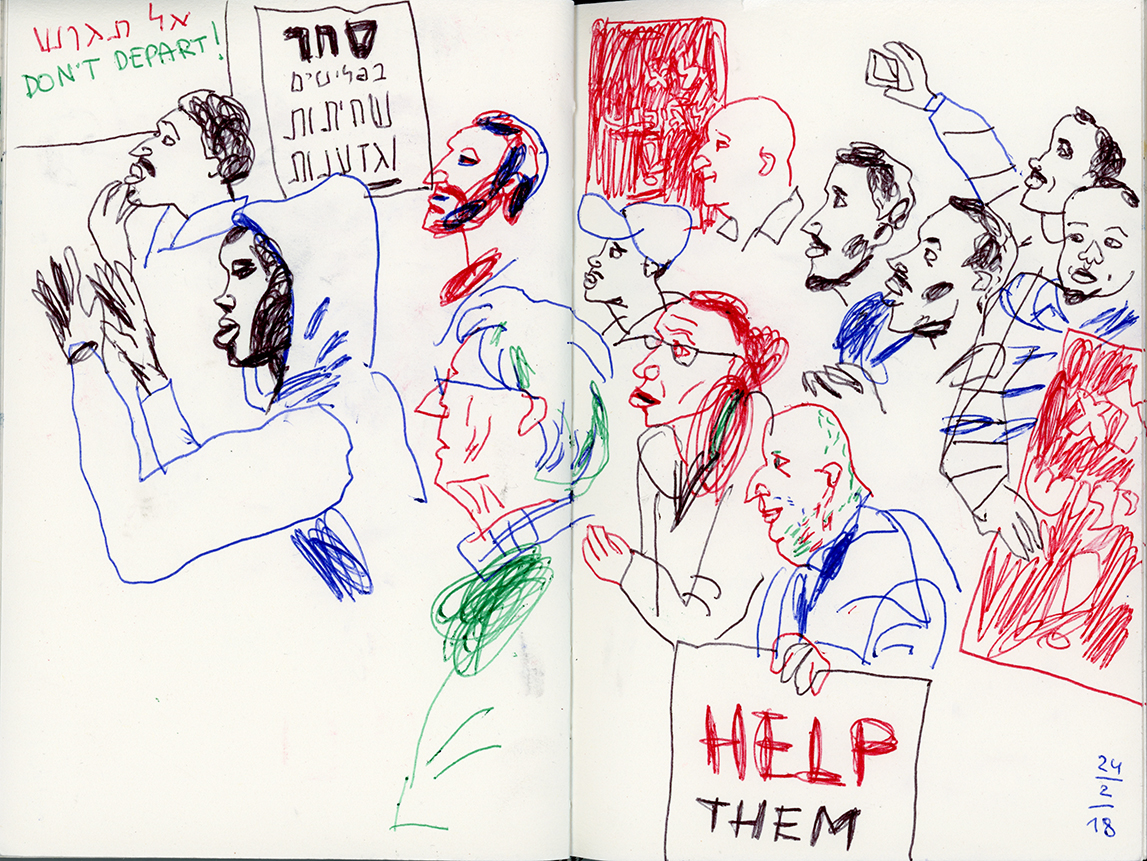 אל תגרש
DON'T DEPART!
סחר
בפליטים
שחיתות
וגזענות
HELP
THEM
24
2
18